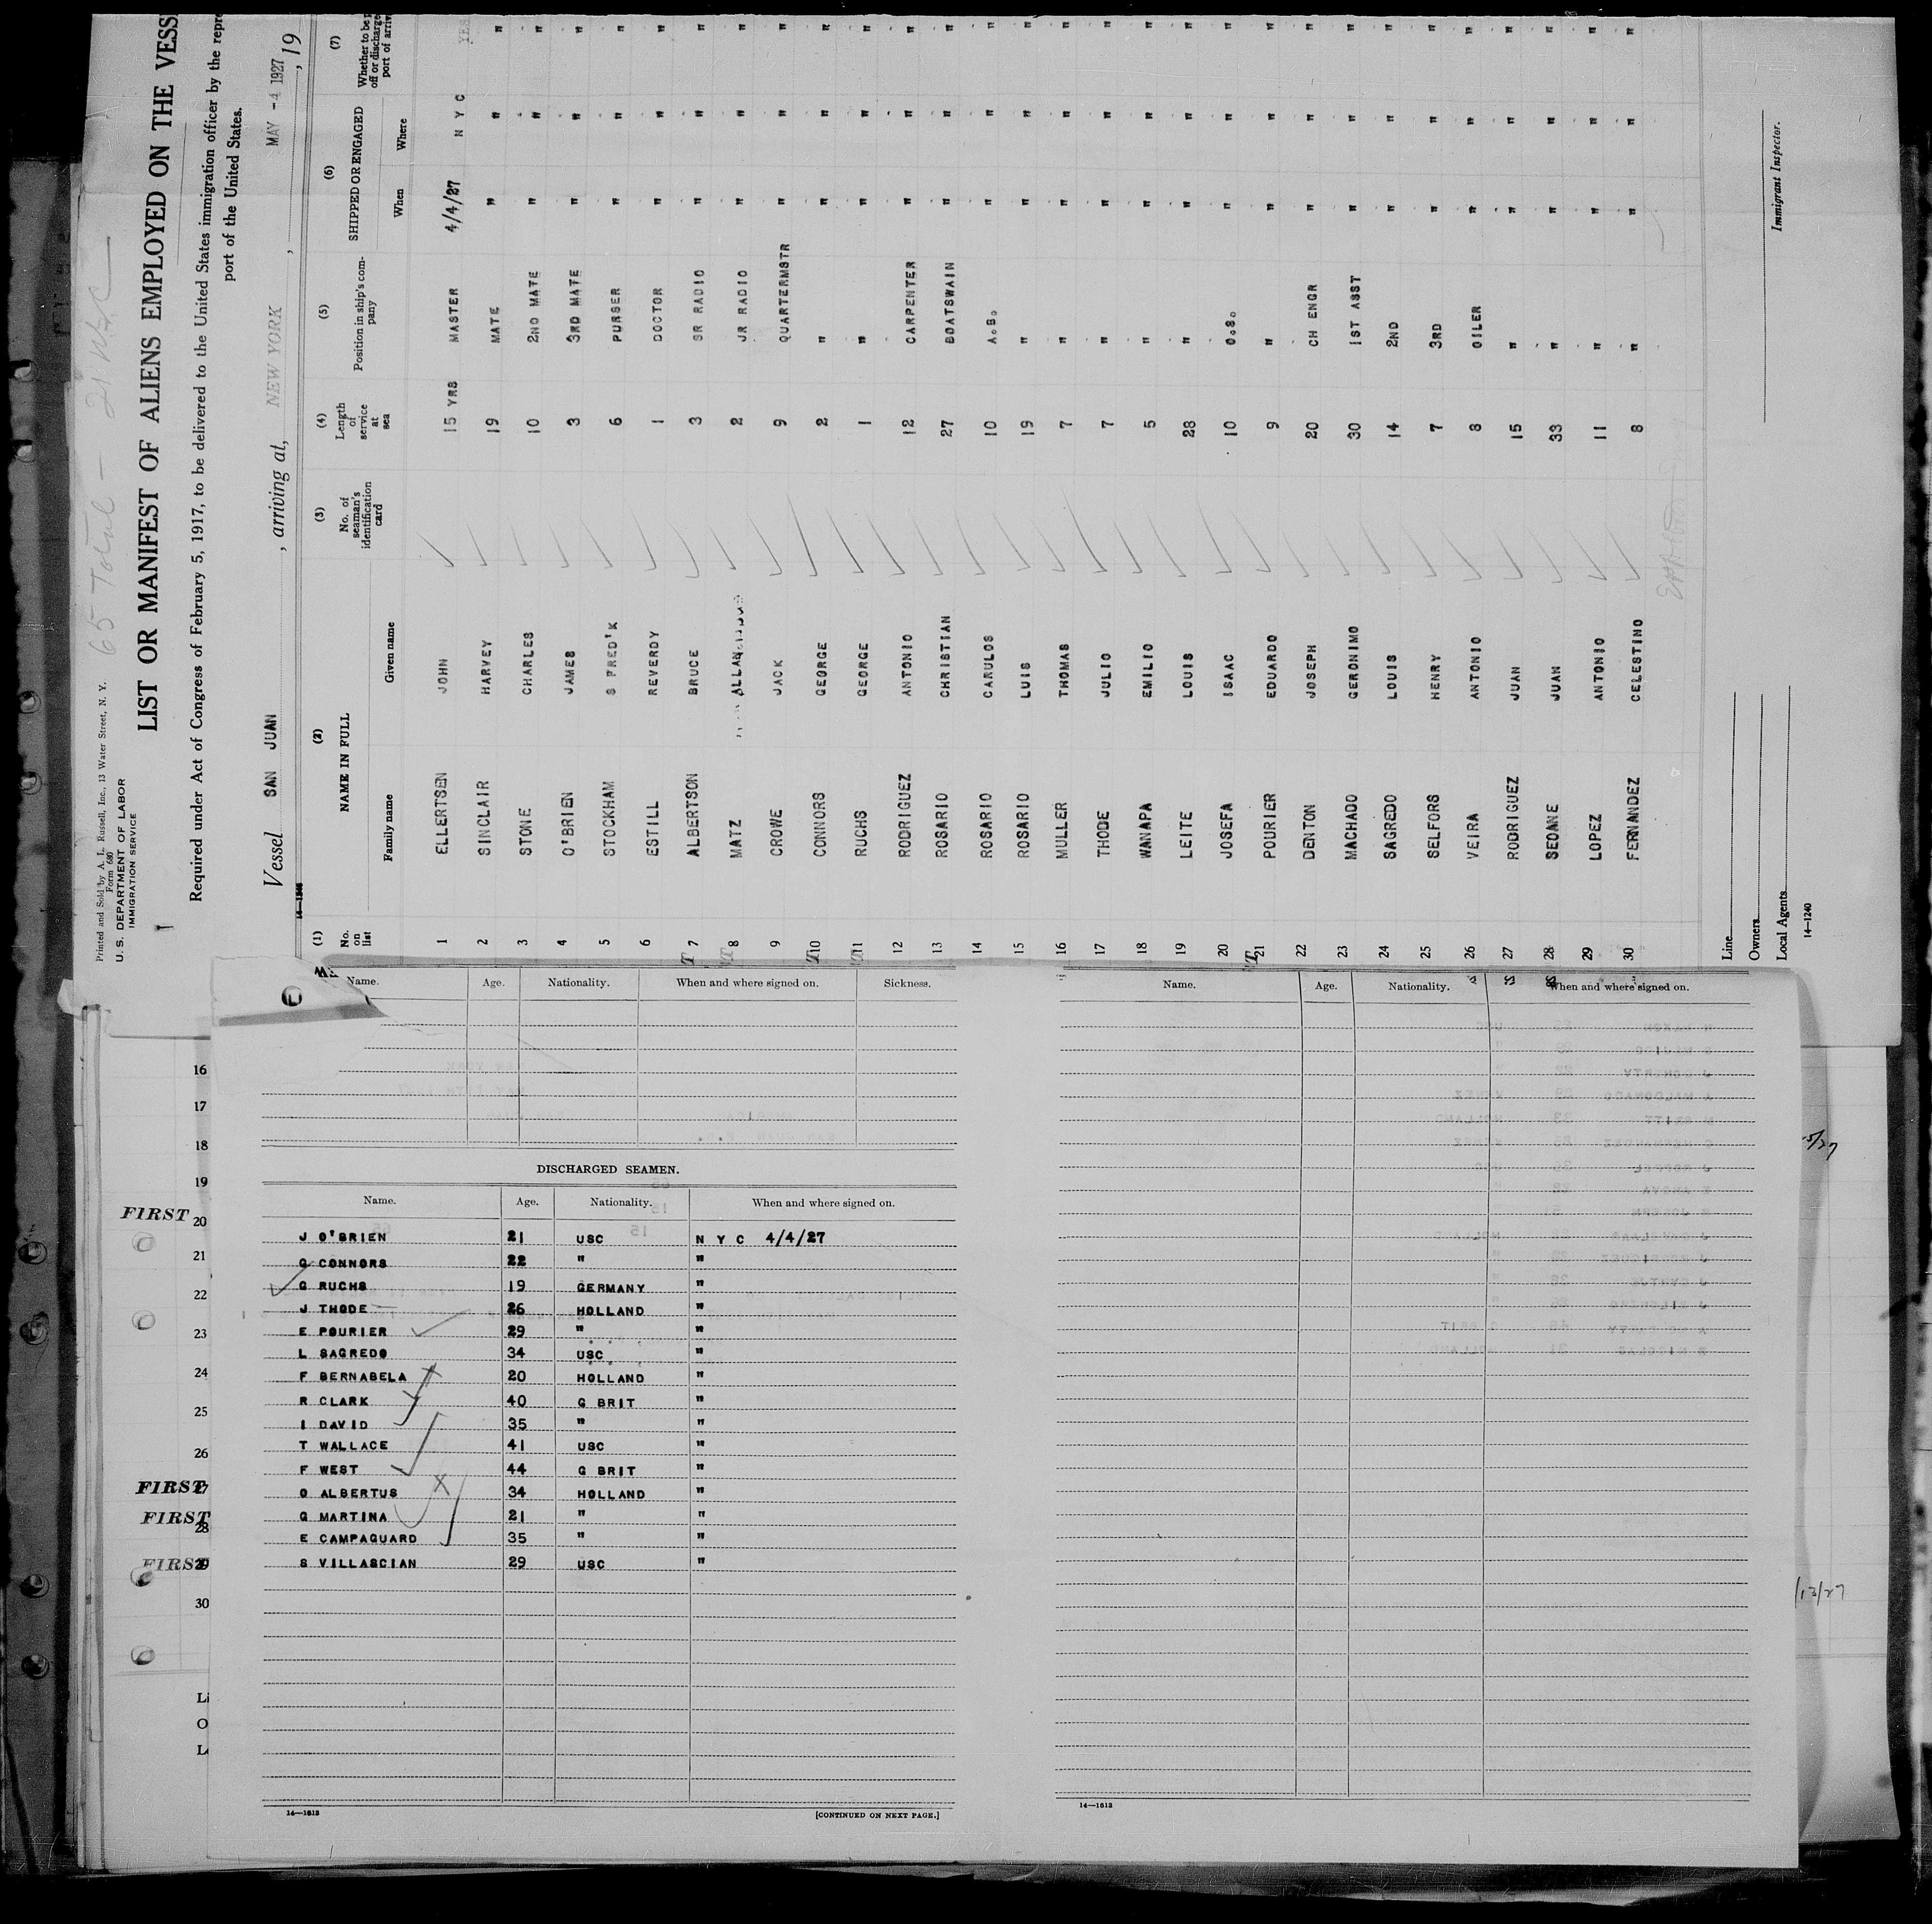 65 Total —
Printed and Sold by A. L. Russell, Inc., 13 Water Street, N. Y.
Form 680
U. S. DEPARTMENT OF LABOR
IMMIGRATION SERVICE
LIST OR MANIFEST OF ALIENS EMPLOYED ON THE VESS
Required under Act of Congress of February 5, 1917, to be delivered to the United States immigration officer by the repre
port of the United States.
Vessel SAN JUAN , arriving at, NEW YORK , MAY -4 1927 , 19
(1) (2) (3) (4) (5) (6) (7)
No. on list NAME IN FULL No. of seaman's identification card Length of service at sea Position in ship's company SHIPPED OR ENGAGED Whether to be p off or discharge port of arriv
Family name Given name When Where
1 ELLERTSEN JOHN 15 YRS MASTER 4/4/27 N Y C YES
2 SINCLAIR HARVEY 19 MATE " " "
3 STONE CHARLES 10 2ND MATE " " "
4 O'BRIEN JAMES 3 3RD MATE " " "
5 STOCKHAM S FRED'K 6 PURSER " " "
6 ESTILL REVERDY 1 DOCTOR " " "
7 ALBERTSON BRUCE 3 SR RADIO " " "
8 MATZ ALLAN 2 JR RADIO " " "
9 CROWE JACK 9 QUARTERMSTR " " "
10 CONNORS GEORGE 2 " " " "
11 RUCHS GEORGE 1 " " " "
12 RODRIGUEZ ANTONIO 12 CARPENTER " " "
13 ROSARIO CHRISTIAN 27 BOATSWAIN " " "
14 ROSARIO CARULOS 10 A.B. " " "
15 ROSARIO LUIS 19 " " " "
16 MULLER THOMAS 7 " " " "
17 THODE JULIO 7 " " " "
18 WANAPA EMILIO 5 " " " "
19 LEITE LOUIS 28 " " " "
20 JOSEFA ISAAC 10 O.S. " " "
21 POURIER EDUARDO 9 " " " "
22 DENTON JOSEPH 20 CH ENGR " " "
23 MACHADO GERONIMO 30 1ST ASST " " "
24 SAGREDO LOUIS 14 2ND " " "
25 SELFORS HENRY 7 3RD " " "
26 VEIRA ANTONIO 8 OILER " " "
27 RODRIGUEZ JUAN 15 " " " "
28 SEOANE JUAN 33 " " " "
29 LOPEZ ANTONIO 11 " " " "
30 FERNANDEZ CELESTINO 8 " " " "
Line
Owners
Local Agents
14—1240
Immigrant Inspector.
Name. Age. Nationality. When and where signed on. Sickness.
DISCHARGED SEAMEN.
Name. Age. Nationality. When and where signed on.
J O'BRIEN 21 USC N Y C 4/4/27
G CONNORS 22 " "
G RUCHS 19 GERMANY "
J THODE 26 HOLLAND "
E POURIER 29 " "
L SAGREDO 34 USC "
F BERNABELA 20 HOLLAND "
R CLARK 40 G BRIT "
I DAVID 35 " "
T WALLACE 41 USC "
F WEST 44 G BRIT "
O ALBERTUS 34 HOLLAND "
G MARTINA 21 " "
E CAMPAGUARD 35 " "
S VILLASCIAN 29 USC "
14—1613
[CONTINUED ON NEXT PAGE.]
Name. Age. Nationality. When and where signed on.
14—1613
16
17
18
19
FIRST 20
21
22
23
24
25
26
FIRST 27
FIRST 28
FIRST 29
30
Li
O
Lo
5/27
/13/27